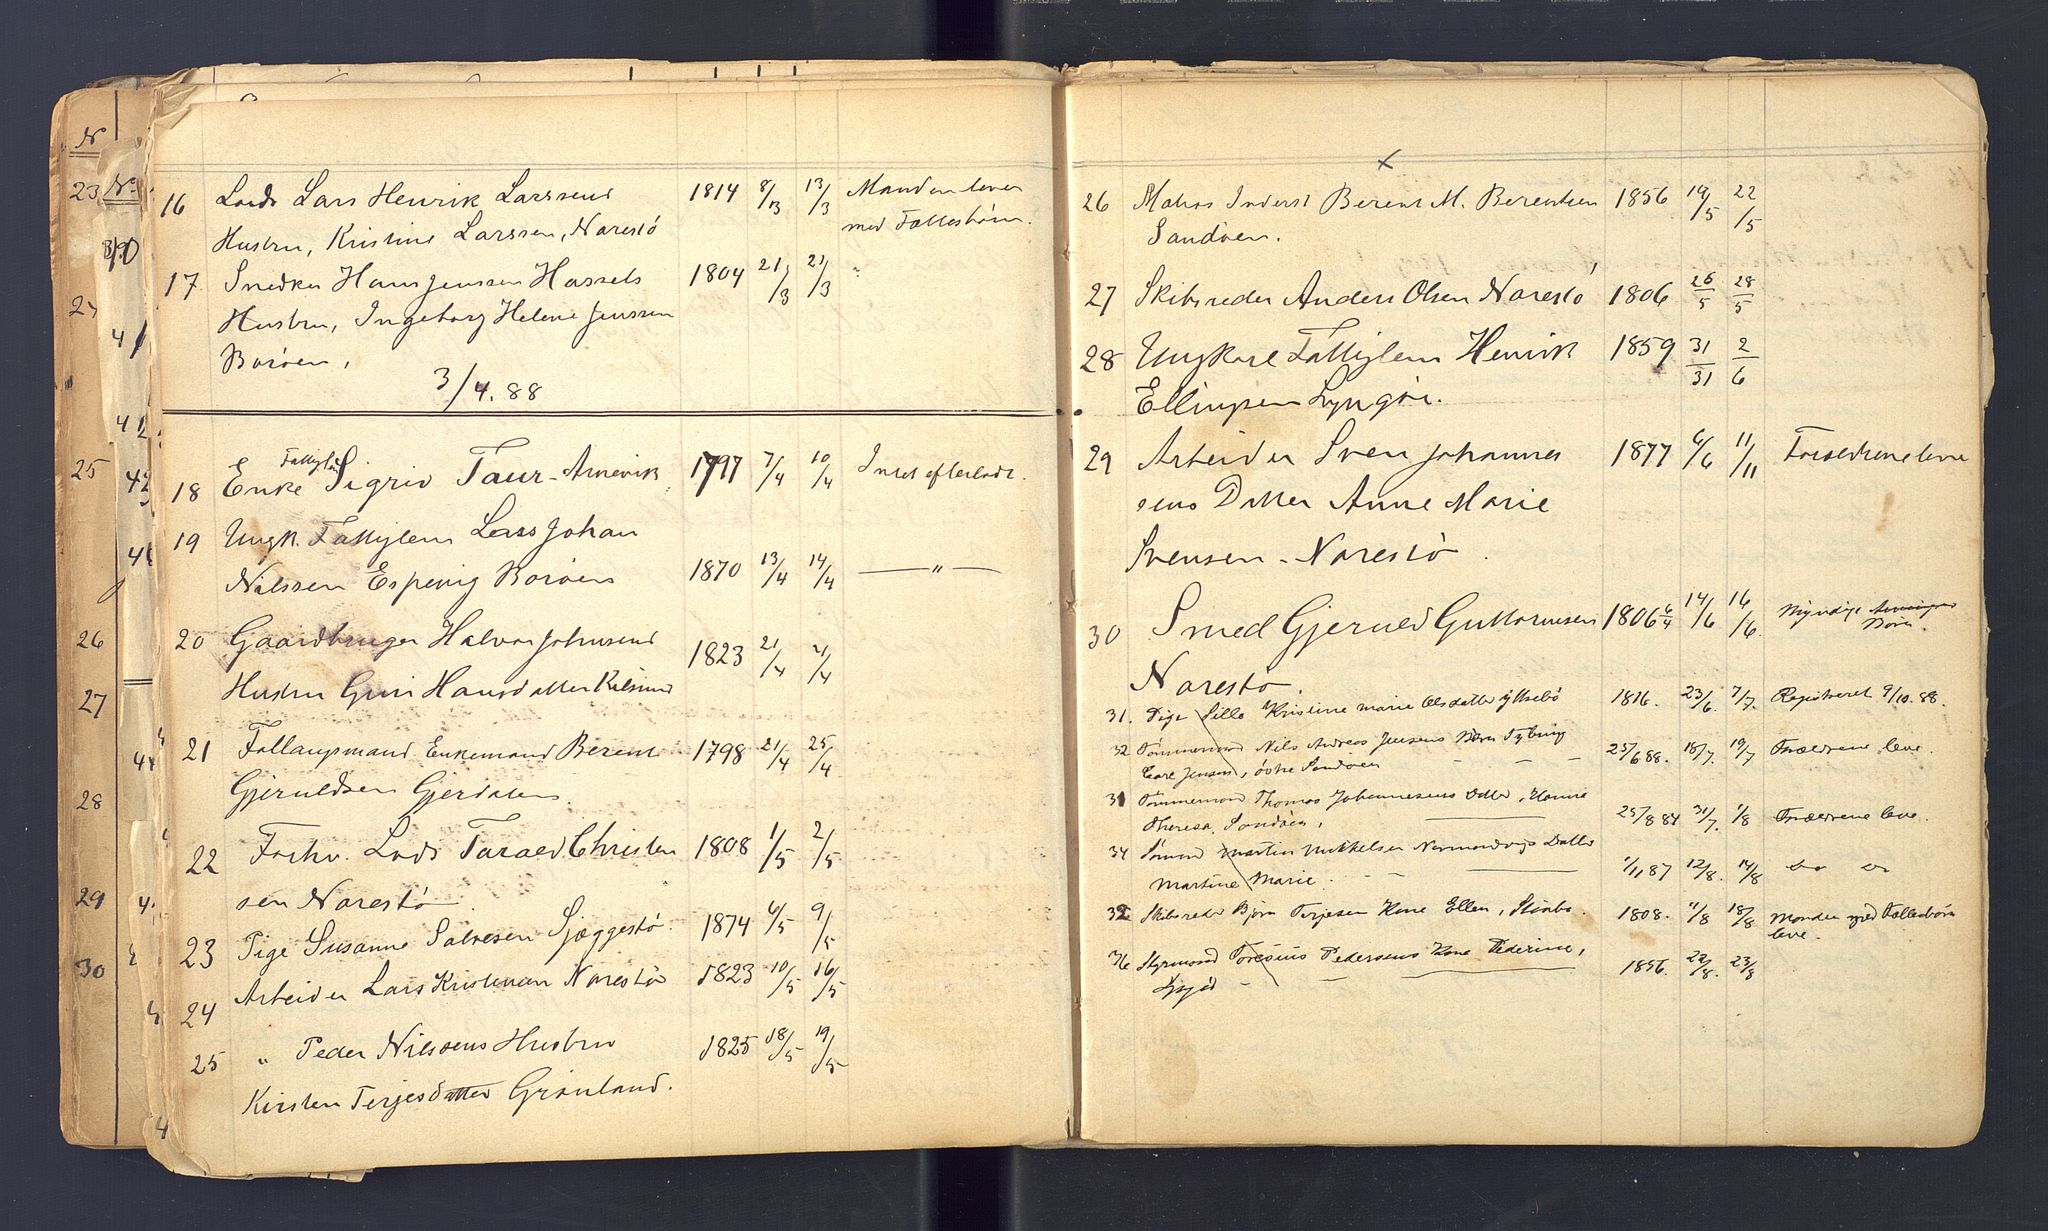 16 Lods Lars Henrik Larssens 1814 8/13 13/3 Manden lever
Hustru, Kristine Larssen, Narestö med Fællesbörn.
17 Snedker Hans Jenssen Hassels 1804 21/3 21/3 "
Hustru, Ingeborg Helene Jenssen
Boröen,
3/4. 88
18 Enke Fattiglem Sigrid Taur - Arnevik 1797 7/4 10/4 Intet efterladt.
19 Ungk. Fattiglem Lars Johan
Nilssen Espevig Boröen 1870 13/4 14/4 — " —
20 Gaardbruger Halvor Johnsens 1823 21/4 21/4
Hustru Guri Hansdatter Kilsund
21 Follaugsmand Enkemand Berent 1798 21/4 25/4
Gjeruldsen Gjerdalen
22 Forhv. Lods Tarald Christen 1808 1/5 2/5
sen Narestö
23 Pige Susanne Salvesen Sjæggestö. 1874 6/5 9/5
24 Arbeider Lars Kristensen Narestö 1823 10/5 16/5
25 " Peder Nilssens Hustru 1825 18/5 19/5
Kirsten Terjesdatter Grönland.
N
23
No
24
25
26
27
28
29
30
x
26 Matros Inderst Berent M. Berentsen 1856 19/5 22/5
Sandöen.
27 Skibsreder Anders Olsen Narestö 1806 26/5 28/5
28 Ungkarl Fattiglem Henrik 1859 31/31 2/6
Ellingsen Lyngör.
29 Arbeider Sven Johannes 1877 6/6 11/11 Forældrene leve
sens Datter Anne Marie
Svensen - Narestö.
30 Smed Gjeruld Guttormsen 1806 6/4 14/6 16/6 Myndige
Börn.
Narestö.
31. Pige Sille Kristine Marie Olsdatter Ytterbö 1816. 23/6. 7/7. Registreret 9/10. 88.
32 Tömmermand Nils Andreas Jensens Barn Tybring 25/6 88. 18/7. 19/7 Forældrene leve.
Earl Jensen, östre Sandöen — — —
31 Tömmermand Thomas Johannesens Datter, Hanna 25/8 84 31/7. 1/8 Forældrene leve.
Theresa, Sandöen,
34 Sömand Martin Mikkelsen Normandvigs Datter
Martine Marie. — — 1/11 87 12/8. 14/8 do do
32 Skibsreder Björn Terjesen Kone Ellen, Staubö. 1808. 11/8 18/8 Manden med Fællesbörn
leve.
36 Styrmand Toresius Pedersens Kone Pederine, 1856. 22/8. 23/8